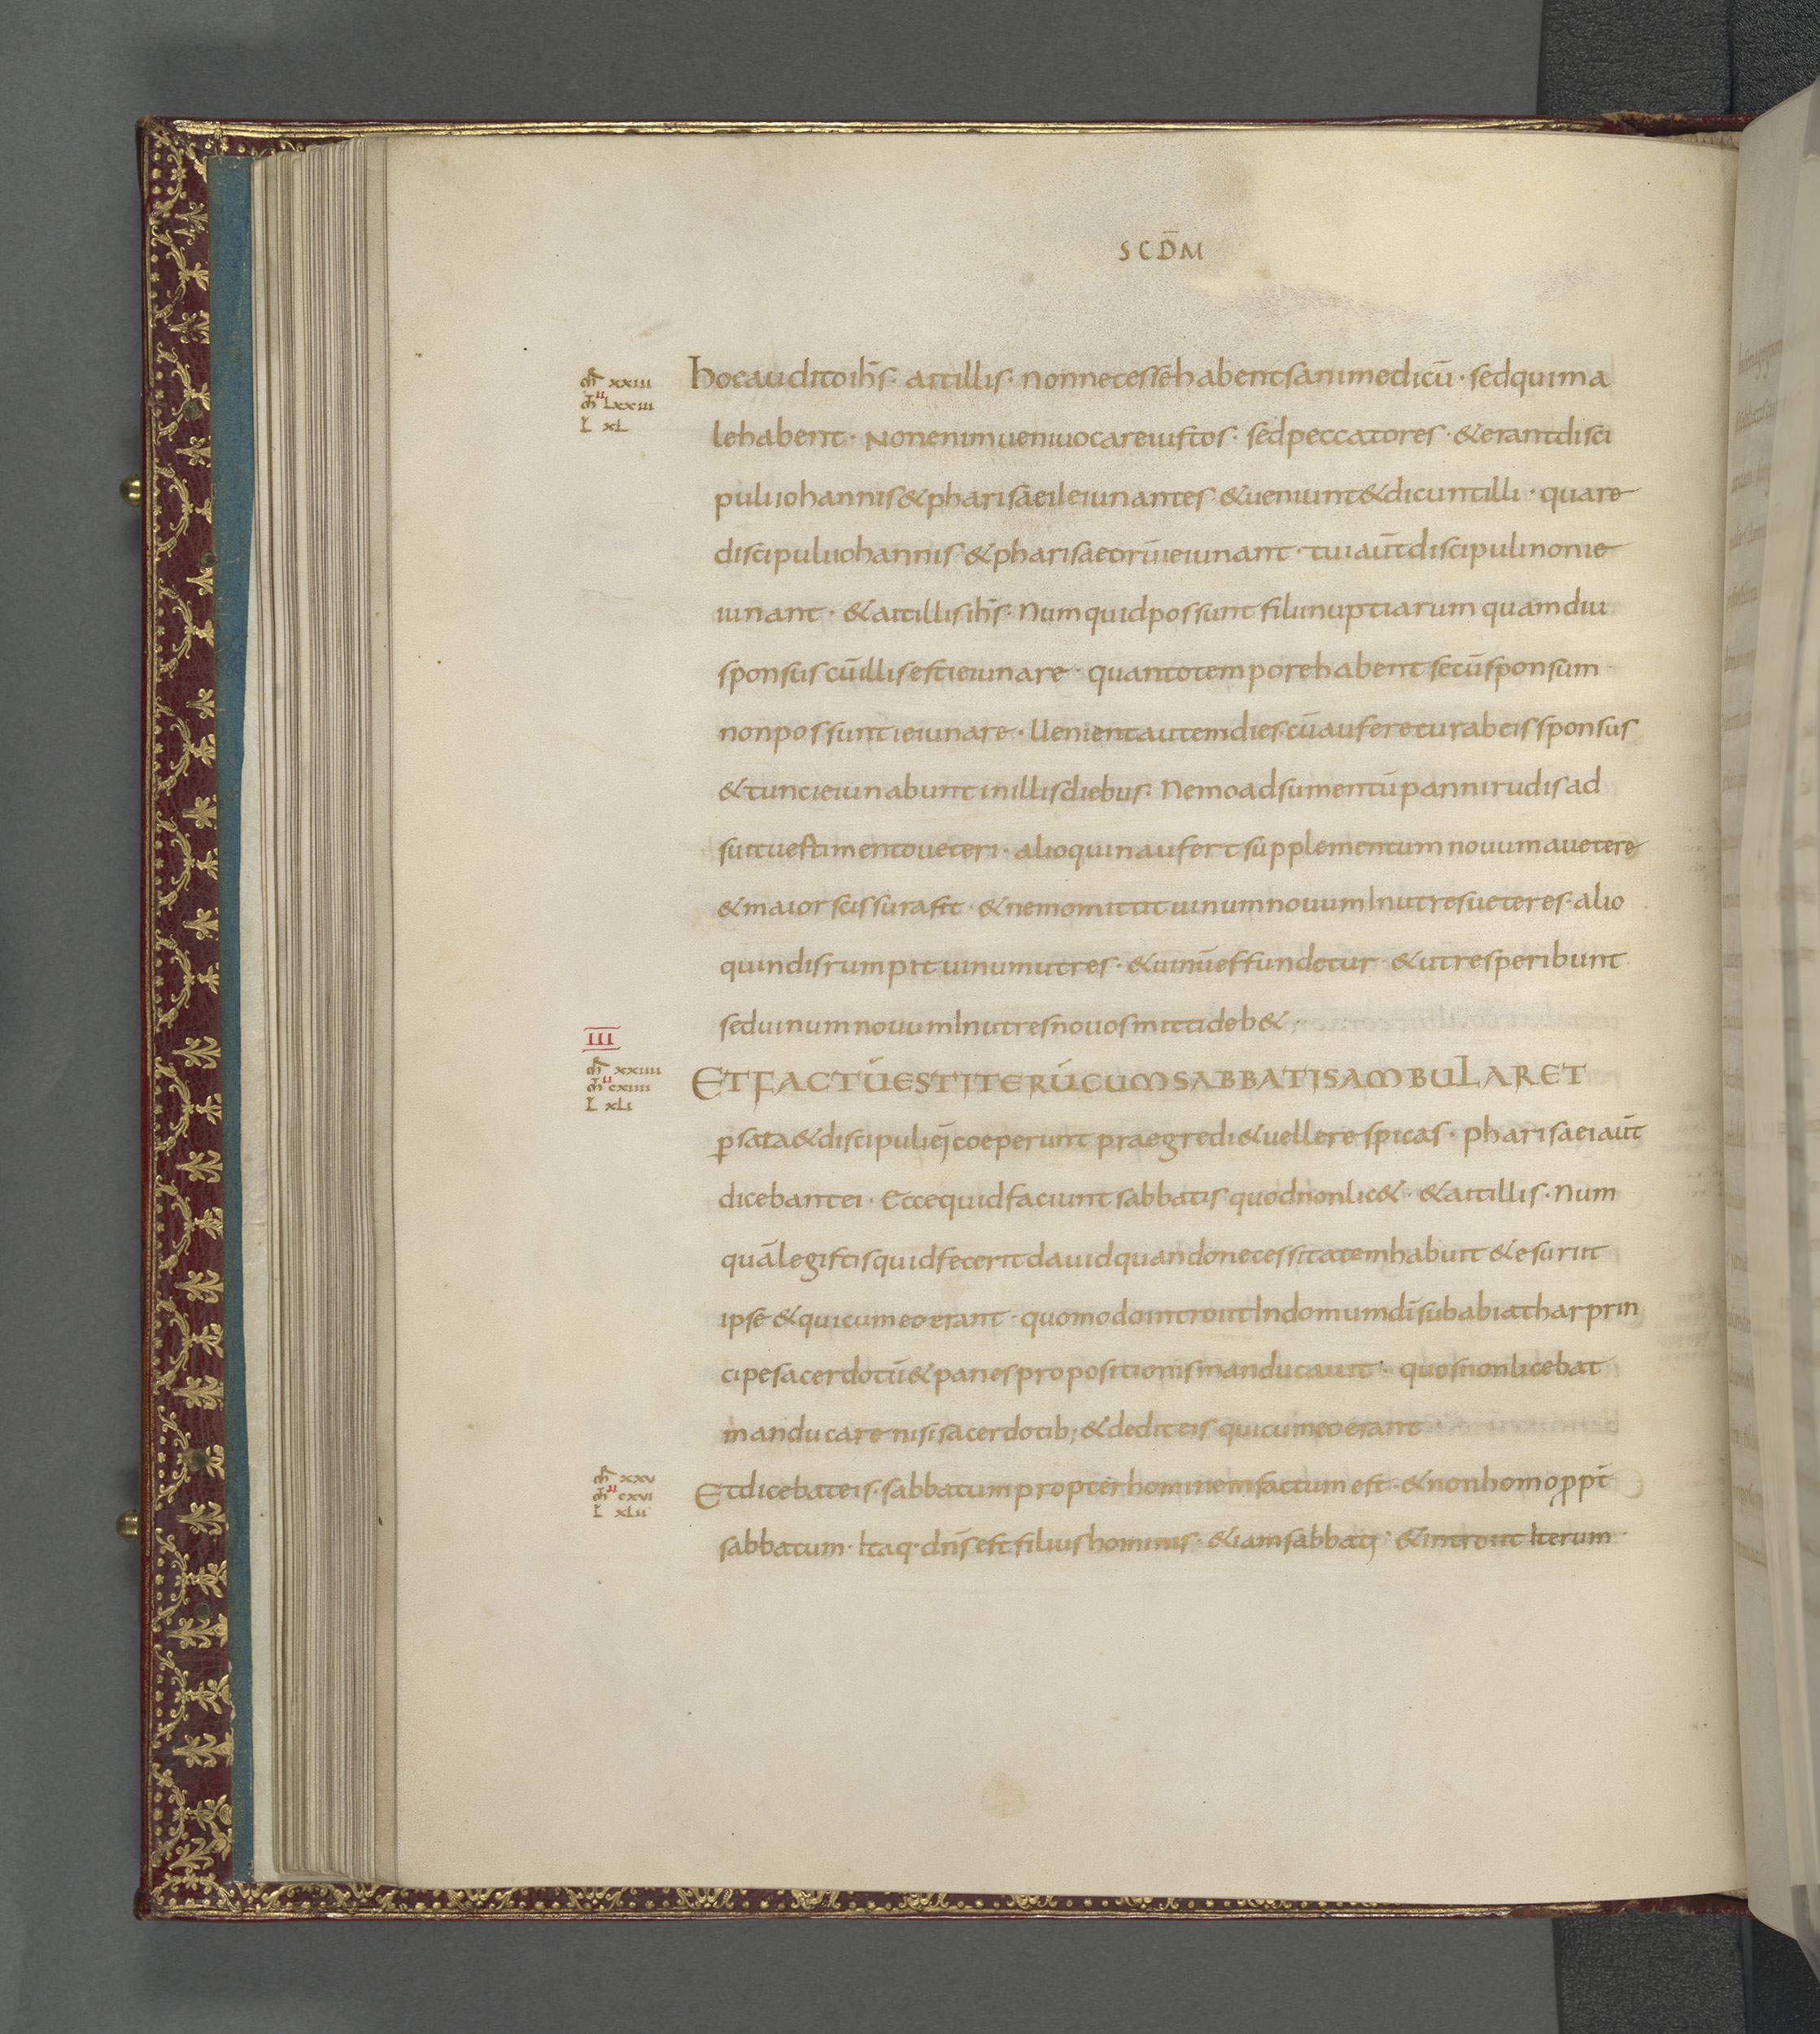 SCD̄M
m̄r xxiii
m̄t lxxiii
L xl
hoc audito ih̄s · ait illis · non necesse habent sani medicū · sed qui ma
le habent · Non enim ueni uocare iustos · sed peccatores · & erant disci
puli iohannis & pharisaei ieiunantes · & ueniunt & dicunt illi · quare
discipuli iohannis & pharisaeorū ieiunant · tui aūt discipuli non ie
iunant · & ait illis ih̄s · Numquid possunt filii nuptiarum quamdiu
sponsus cū illis est ieiunare · quanto tempore habent secū sponsum
non possunt ieiunare · Uenient autem dies · cū auferetur ab eis sponsus
& tunc ieiunabunt in illis diebus · Nemo adsumentū panni rudis ad
suit uestimento ueteri · alioquin aufert supplementum nouum a uetere
& maior scissura fit · & nemo mittit uinum nouum In utres ueteres · alio
quin disrumpit uinum utres · & uinū effundetur · & utres peribunt
sed uinum nouum In utres nouos mitti deb& ·
III
m̄r xxiiii
m̄t cxiiii
L xli
ET FACTŪ EST ITERŪ CUM SABBATIS AMBULARET
p̱ sata & discipuli ej coeperunt praegredi & uellere spicas · pharisaei aūt
dicebant ei · Ecce quid faciunt sabbatis quod non lic& · & ait illis · Num
quā legistis quid fecerit dauid quando necessitatem habuit & esuriit
ipse & qui cum eo erant · quomodo introiit In domum dī sub abiathar prin
cipe sacerdotū & panes propositionis manducauit · quos non licebat
manducare nisi sacerdotib; & dedit eis qui cum eo erant
m̄r xxv
m̄t cxvi
L xlii
Et dicebat eis · sabbatum propter hominem factum est · & non homo p̱pt̄
sabbatum · Itaq· dn̄s est filius hominis · & iam sabbatj · & introiit Iterum